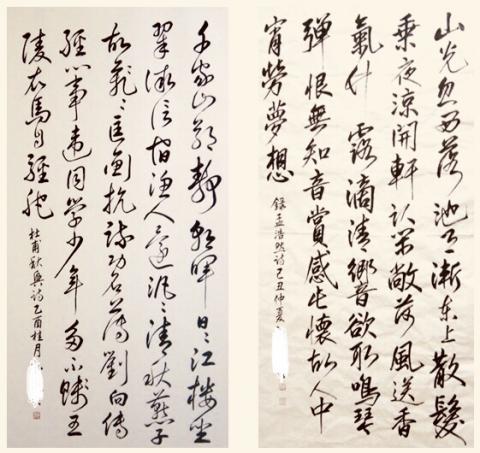 千家山郭靜朝暉日〻江樓坐
翠微信宿漁人還汎〻清秋燕子
故飛〻匡衡抗疏功名薄劉向傳
經心事違同學少年多不賤五
陵衣馬自輕肥
杜甫秋興詩乙酉桂月
山光忽西落池月漸東上散髮
乘夜涼開軒臥閑敞荷風送香
氣竹露滴清響欲取鳴琴
彈恨無知音賞感此懷故人中
宵勞夢想
錄孟浩然詩己丑仲夏